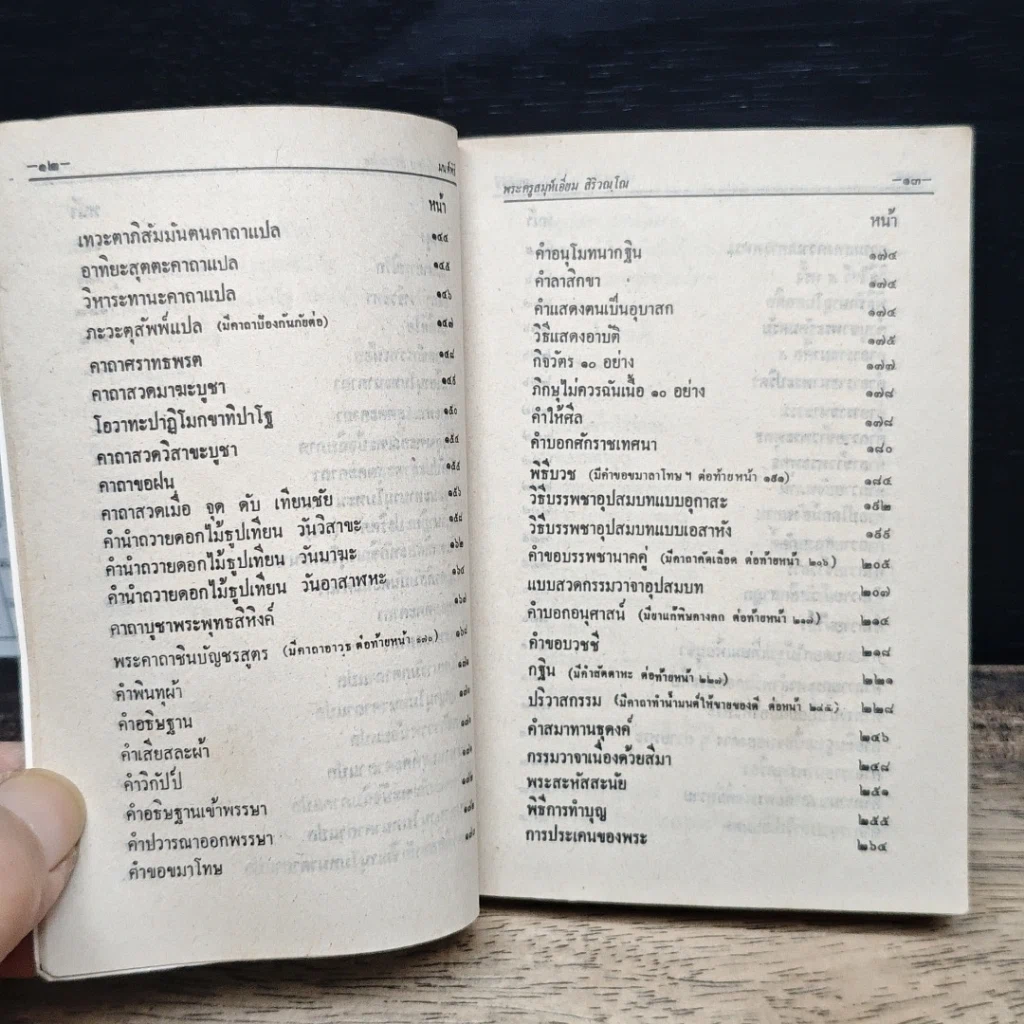 —๑๒—
มนต์พิธี
หน้า
เทวะตาภิสัมมันตนคาถาแปล ๑๔๔
อาทิยะสุตตะคาถาแปล ๑๔๕
วิหาระทานะคาถาแปล ๑๔๖
ภะวะตุสัพพ์แปล (มีคาถาป้องกันภัยต่อ) ๑๔๗
คาถาศราทธพรต ๑๔๘
คาถาสวดมาฆะบูชา ๑๔๙
โอวาทะปาฏิโมกขาทิปาโฐ ๑๕๐
คาถาสวดวิสาขะบูชา ๑๕๔
คาถาขอฝน ๑๕๕
คาถาสวดเมื่อ จุด ดับ เทียนชัย ๑๕๖
คำนำถวายดอกไม้ธูปเทียน วันวิสาขะ ๑๕๘
คำนำถวายดอกไม้ธูปเทียน วันมาฆะ ๑๖๒
คำนำถวายดอกไม้ธูปเทียน วันอาสาฬหะ ๑๖๔
คาถาบูชาพระพุทธสิหิงค์ ๑๖๗
พระคาถาชินบัญชรสูตร (มีคาถาอาวุธ ต่อท้ายหน้า ๑๗๐) ๑๖๘
คำพินทุผ้า
คำอธิษฐาน
คำเสียสละผ้า
คำวิกัปป์
คำอธิษฐานเข้าพรรษา
คำปวารณาออกพรรษา
คำขอขมาโทษ
พระครูสมุห์เอี่ยม สิริวณฺโณ
—๑๓—
หน้า
คำอนุโมทนากฐิน ๑๗๔
คำลาสิกขา ๑๗๔
คำแสดงตนเป็นอุบาสก ๑๗๔
วิธีแสดงอาบัติ ๑๗๕
กิจวัตร ๑๐ อย่าง ๑๗๗
ภิกษุไม่ควรฉันเนื้อ ๑๐ อย่าง ๑๗๘
คำให้ศีล ๑๗๘
คำบอกศักราชเทศนา ๑๘๐
พิธีบวช (มีคำขอขมาลาโทษ ฯ ต่อท้ายหน้า ๑๙๑) ๑๘๔
วิธีบรรพชาอุปสมบทแบบอุกาสะ ๑๙๒
วิธีบรรพชาอุปสมบทแบบเอสาหัง ๑๙๙
คำขอบรรพชานาคคู่ (มีคาถาคัดเลือด ต่อท้ายหน้า ๒๐๖) ๒๐๕
แบบสวดกรรมวาจาอุปสมบท ๒๐๗
คำบอกอนุศาสน์ (มียาแก้พิษคางคก ต่อท้ายหน้า ๒๑๗) ๒๑๔
คำขอบวชชี ๒๑๘
กฐิน (มีคำสัตตาหะ ต่อท้ายหน้า ๒๒๗) ๒๒๑
ปริวาสกรรม (มีคาถาทำน้ำมนต์ให้ขายของดี ต่อหน้า ๒๔๕) ๒๒๘
คำสมาทานธุดงค์ ๒๔๖
กรรมวาจาเนื่องด้วยสิมา ๒๔๘
พระสะหัสสะนัย ๒๕๑
พิธีการทำบุญ ๒๕๕
การประเคนของพระ ๒๖๔